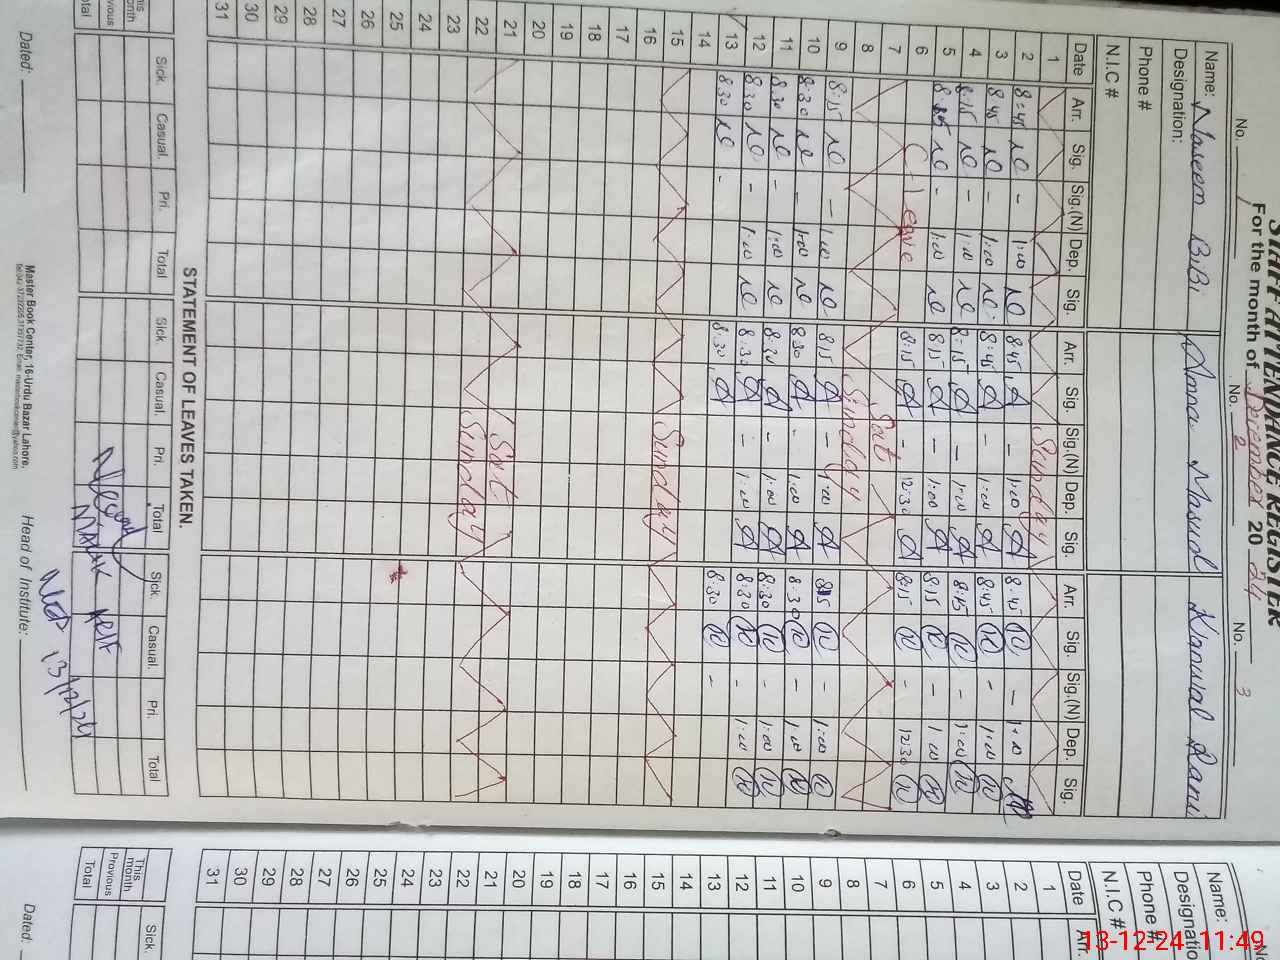 STAFF ATTENDANCE REGISTER
For the month of December 2024
No. No. 2 No. 3
Name: Naseem BiBi Amna Masud Kanwal Rani
Designation:
Phone #
N.I.C #
Date Arr. Sig. Sig.(N) Dep. Sig. Arr. Sig. Sig.(N) Dep. Sig. Arr. Sig. Sig.(N) Dep. Sig.
1 Sunday
2 8:45 - 1:00 8:45 - 1:00 8:45 - 1:00
3 8:45 - 1:00 8:45 - 1:00 8:45 - 1:00
4 8:15 - 1:00 8:15 - 1:00 8:15 - 1:00
5 8:15 - 1:00 8:15 - 1:00 8:15 - 1:00
6 C-leave 8:15 - 12:30 8:15 - 12:30
7 Sat
8 Sunday
9 8:15 - 1:00 8:15 - 1:00 8:15 - 1:00
10 8:30 - 1:00 8:30 - 1:00 8:30 - 1:00
11 8:30 - 1:00 8:30 - 1:00 8:30 - 1:00
12 8:30 - 1:00 8:30 - 1:00 8:30 - 1:00
13 8:30 - 8:30 8:30 -
14
15 Sunday
16
17
18
19
20
21 Sat
22 Sunday
23
24
25
26
27
28
29
30
31
STATEMENT OF LEAVES TAKEN.
Sick. Casual. Pri. Total Sick. Casual. Pri. Total Sick Casual. Pri. Total
This month
Previous
Total
13/12/24
Dated: Head of Institute:
Master Book Center, 16-Urdu Bazar Lahore.
Name:
Designatio
Phone #
N.I.C #
Date Arr.
1
2
3
4
5
6
7
8
9
10
11
12
13
14
15
16
17
18
19
20
21
22
23
24
25
26
27
28
29
30
31
Sick.
This month
Previous
Total
Dated:
13-12-24 11:49